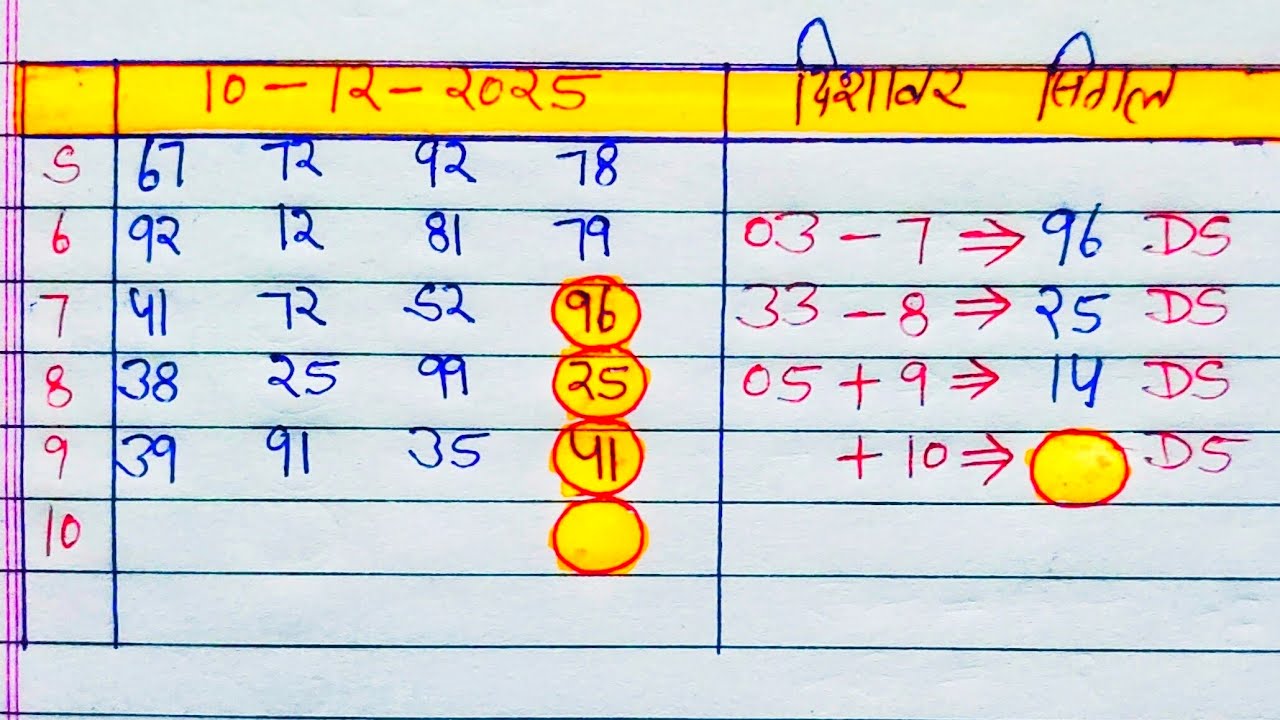 10-12-2025 दिशावर सिंगल
5 67 72 92 78
6 92 12 81 79 03 - 7 ⇒ 96 DS
7 41 72 52 96 33 - 8 ⇒ 25 DS
8 38 25 99 25 05 + 9 ⇒ 14 DS
9 39 91 35 41 + 10 ⇒ DS
10